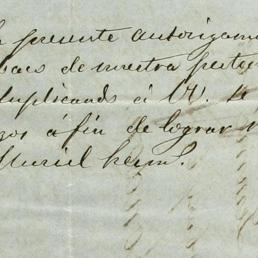 a presente autorizamo
de nuestra perte
uplicando á U. se
gos á fin de lograr
Muriel herm.